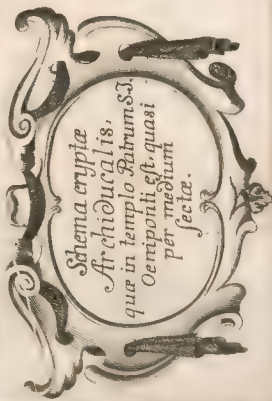 Schema cryptæ
Archiducalis,
quæ in templo Patrum S.J.
Oeniponti est, quasi
per medium
sectæ.